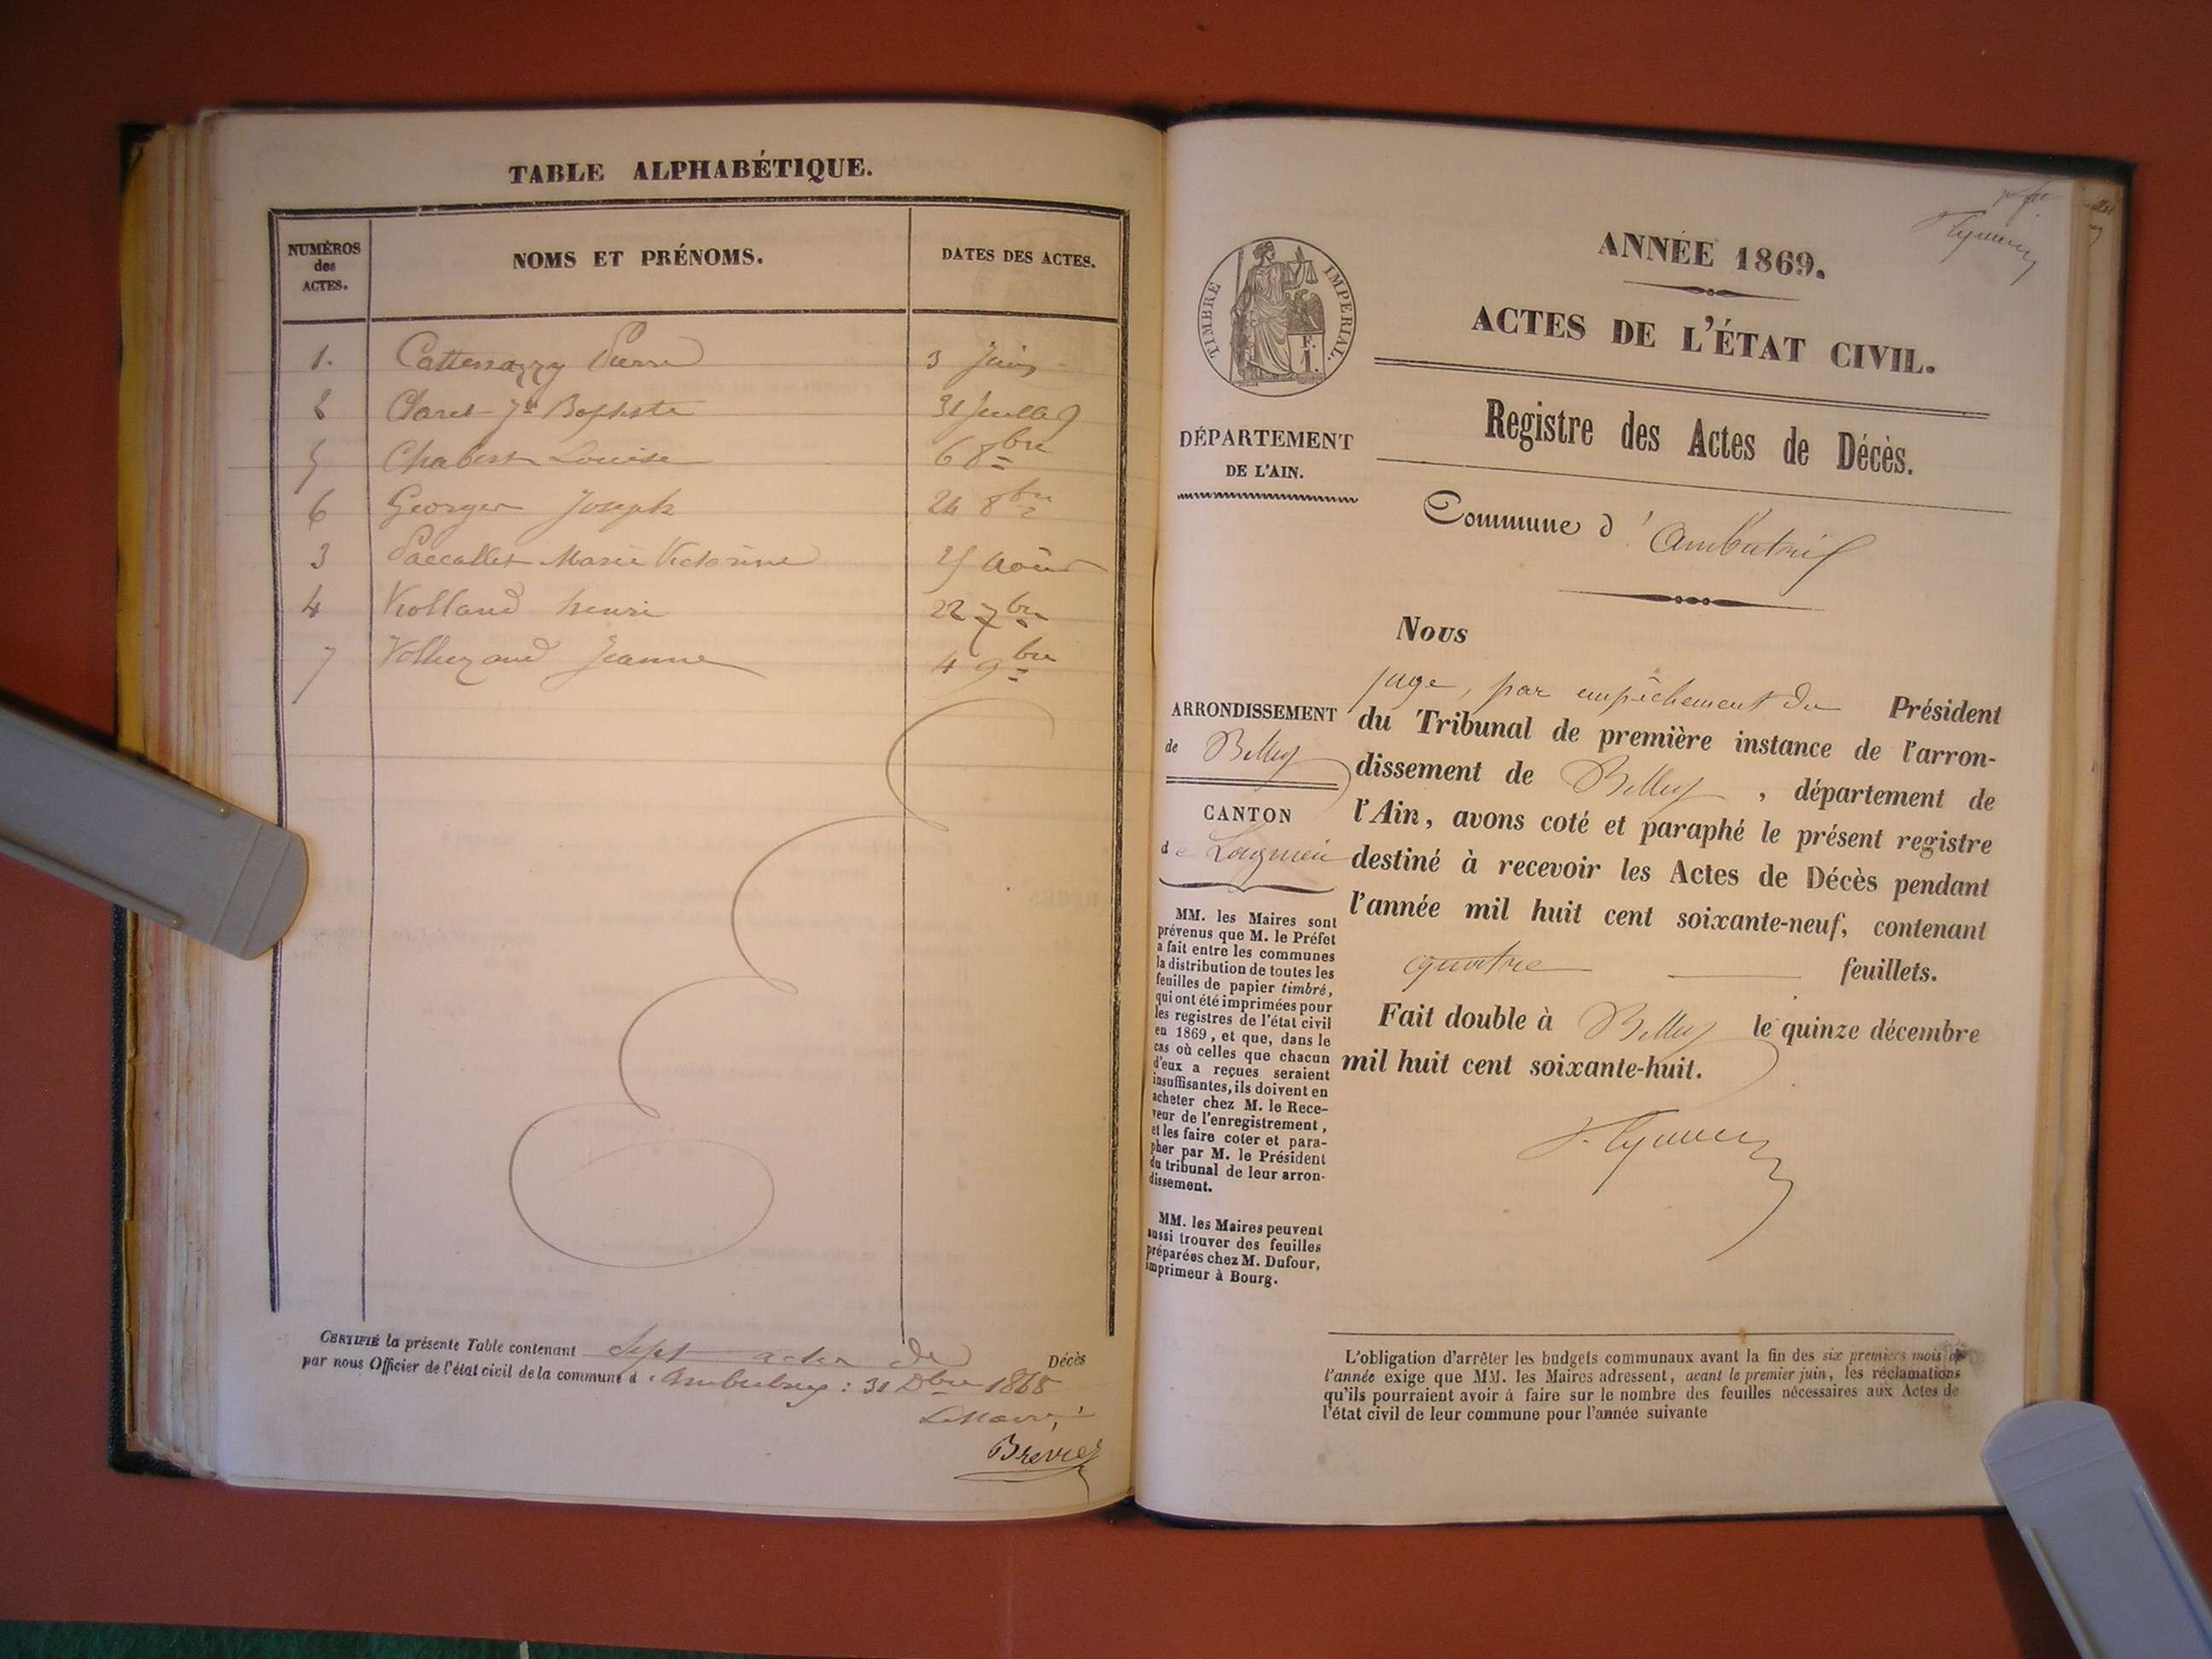 TABLE ALPHABÉTIQUE.
NUMÉROS
des
ACTES.
NOMS ET PRÉNOMS.
DATES DES ACTES.
1. Pierre 3 Juin
2 Claret Jn Baptiste 31 Juillet
5 Chabert Louise 6 8bre
6 Georges Joseph 24 8bre
3 Paccallet Marie Victorine 25 Août
4 Henri 22 7bre
7 Jeanne 4 9bre
CERTIFIÉ la présente Table contenant Sept actes de Décès
par nous Officier de l'état civil de la commune d'Ambutrix : 31 Dbre 1868
Le Maire,
TIMBRE IMPÉRIAL.
F.
1.
ANNÉE 1869.
ACTES DE L'ÉTAT CIVIL.
Registre des Actes de Décès.
Commune d'Ambutrix
DÉPARTEMENT
DE L'AIN.
ARRONDISSEMENT
de Belley
CANTON
de Lagnieu
MM. les Maires sont
prévenus que M. le Préfet
a fait entre les communes
la distribution de toutes les
feuilles de papier timbré,
qui ont été imprimées pour
les registres de l'état civil
en 1869, et que, dans le
cas où celles que chacun
d'eux a reçues seraient
insuffisantes, ils doivent en
acheter chez M. le Rece-
veur de l'enregistrement,
et les faire coter et para-
pher par M. le Président
du tribunal de leur arron-
dissement.
MM. les Maires peuvent
aussi trouver des feuilles
préparées chez M. Dufour,
imprimeur à Bourg.
Nous
juge, par empêchement du Président
du Tribunal de première instance de l'arron-
dissement de Belley, département de
l'Ain, avons coté et paraphé le présent registre
destiné à recevoir les Actes de Décès pendant
l'année mil huit cent soixante-neuf, contenant
quatre feuillets.
Fait double à Belley le quinze décembre
mil huit cent soixante-huit.
L'obligation d'arrêter les budgets communaux avant la fin des six premiers mois de
l'année exige que MM. les Maires adressent, avant le premier juin, les réclamations
qu'ils pourraient avoir à faire sur le nombre des feuilles nécessaires aux Actes de
l'état civil de leur commune pour l'année suivante